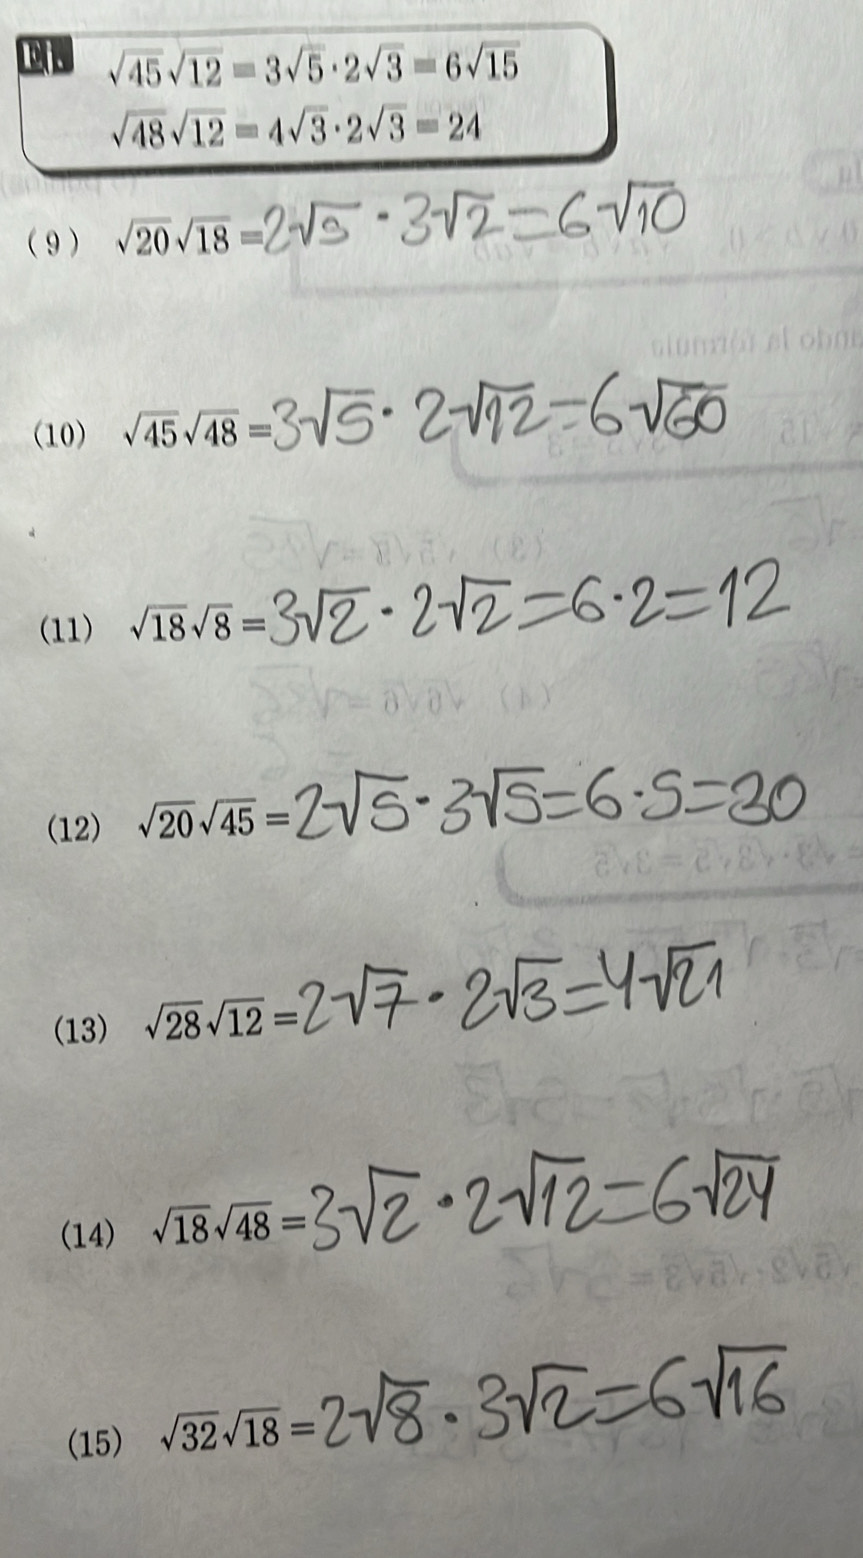 Ej. √45√12 = 3√5·2√3 = 6√15
√48√12 = 4√3·2√3 = 24
(9) √20√18 = 2√5 · 3√2 = 6√10
(10) √45√48 = 3√5 · 2√12 = 6√60
(11) √18√8 = 3√2 · 2√2 = 6·2 = 12
(12) √20√45 = 2√5 · 3√5 = 6·5 = 30
(13) √28√12 = 2√7 · 2√3 = 4√21
(14) √18√48 = 3√2 · 2√12 = 6√24
(15) √32√18 = 2√8 · 3√2 = 6√16